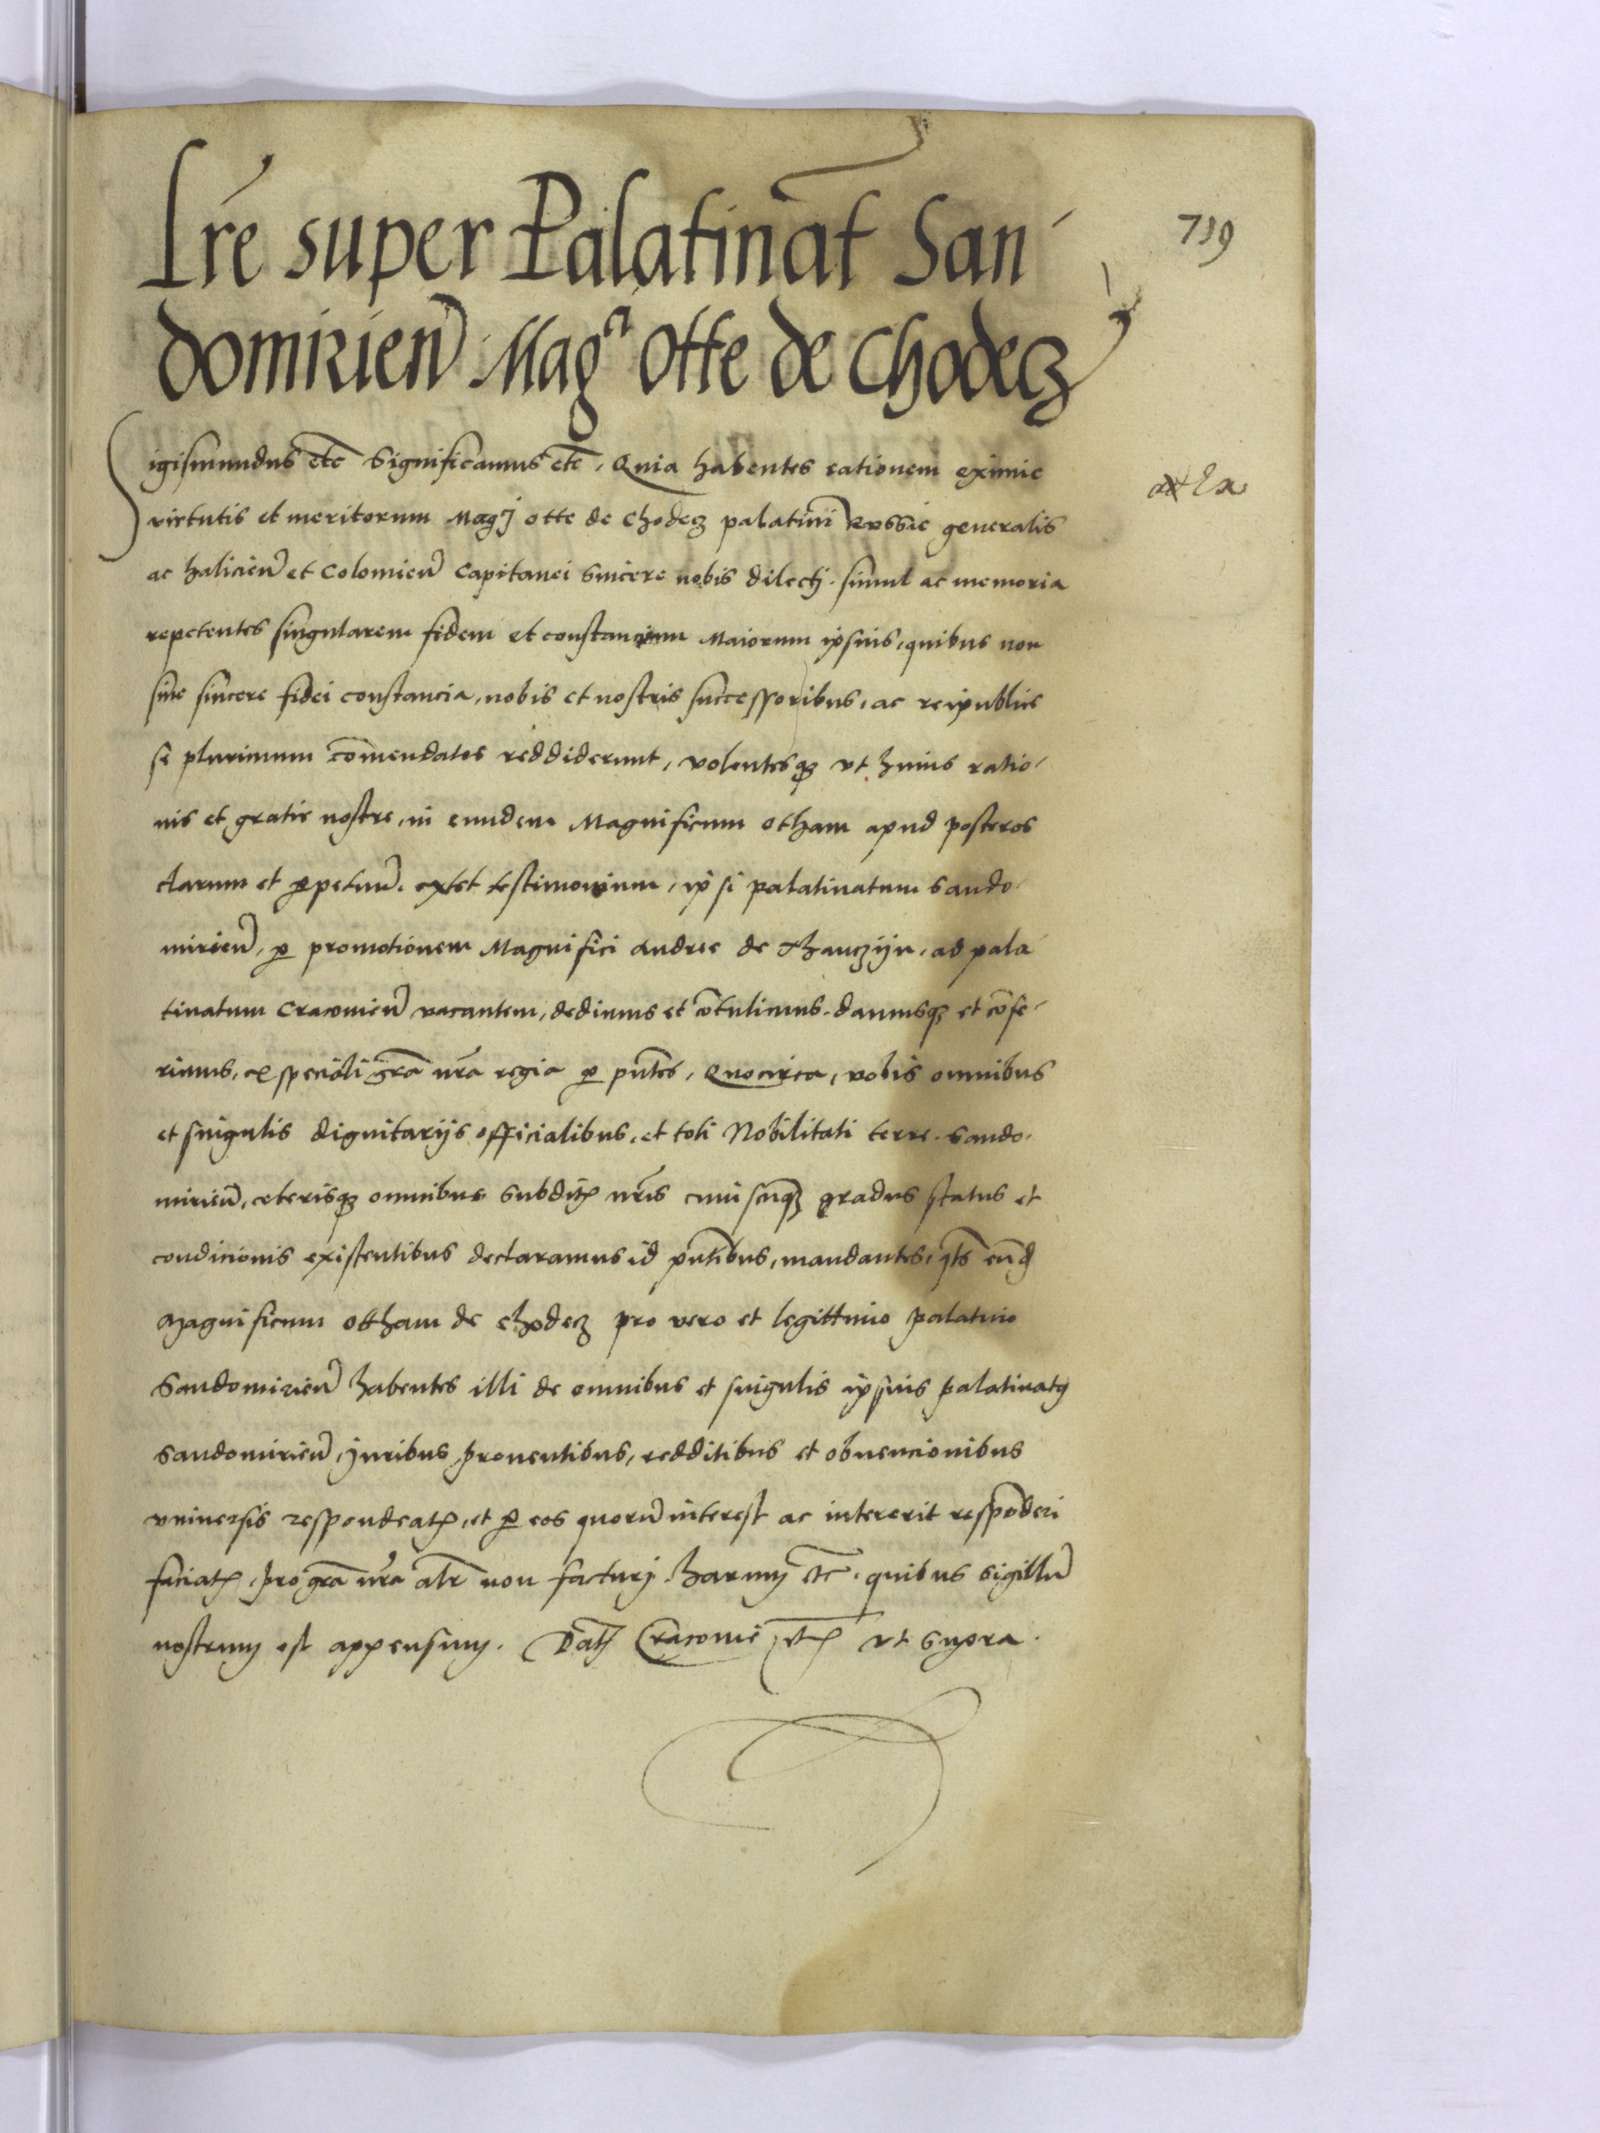 Lrẽ super Palatinat̃ San-
domirien̄ Mag^ci Otte de Chodecz
739
Sigismundus etc̄ Significamus etc̄, Quia habentes rationem eximie
virtutis et meritorum Mag^cj Otte de Chodecz palatini Russie generalis
ac halicien̄ et Colomien̄ Capitanei sincere nobis dilectj. simul ac memoria
repetentes singularem fidem et constanciam Maiorum ipsius, quibus non
sine sincere fidei constancia, nobis et nostris successoribus, ac reipublice
se plurimum com̄endatos reddiderunt, volentesqȝ vt huius ratio-
nis et gratie nostre, in eundem Magnificum Otham apud posteros
clarum et ꝑpetuū. extet testimonium, ipsi palatinatum Sando-
mirien̄, ꝑ promotionem Magnifici Andree de Thanczijn, ad pala-
tinatum Cracovien̄ vacantem, dedimus et cōtulimus. damusqȝ et cōfe-
rimus, ex speciali gr̄a nr̄a regia ꝑ pn̄tes, Quocirca, vobis omnibus
et singulis dignitarijs officialibus, et toti Nobilitati terre Sando-
mirien̄, ceterisqȝ omnibus subditꝭ nr̄is cuiuscūqȝ gradus status et
condicionis existentibus declaramus id pn̄tibus, mandantes, qt̄s eūd̄
Magnificum Ottham de Chodecz pro vero et legittimo palatino
Sandomirien̄ habentes illi de omnibus et singulis ipsius palatinatꝰ
Sandomirien̄, juribus proventibus, redditibus et obvencionibus
vniversis respondeatꝭ, et ꝑ eos quorū interest ac intererit respōderi
faciatꝭ, pro gr̄a nr̄a alr̄ non facturj. harum etc̄. quibus sigillū
nostrum est appensum. Dat̄ Cracovie, etc̄ vt supra.